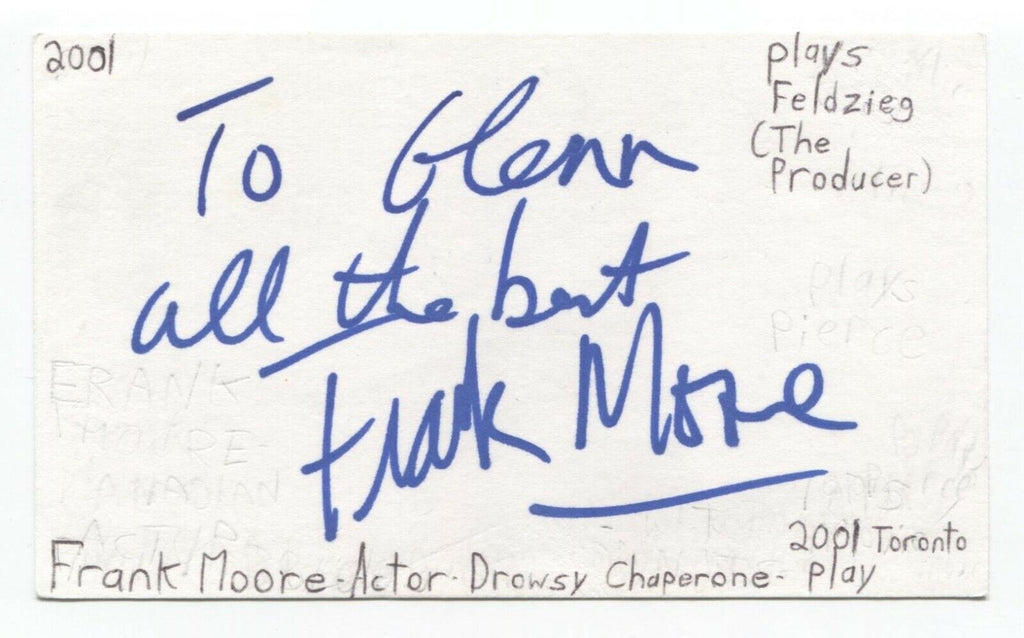 2001
plays
Feldzieg
(The
Producer)
To Glenn
all the best
Frank Moore
plays
Pierce
FRANK
MOORE-
CANADIAN
ACTOR
2001 Toronto
Frank Moore-Actor-Drowsy Chaperone- play